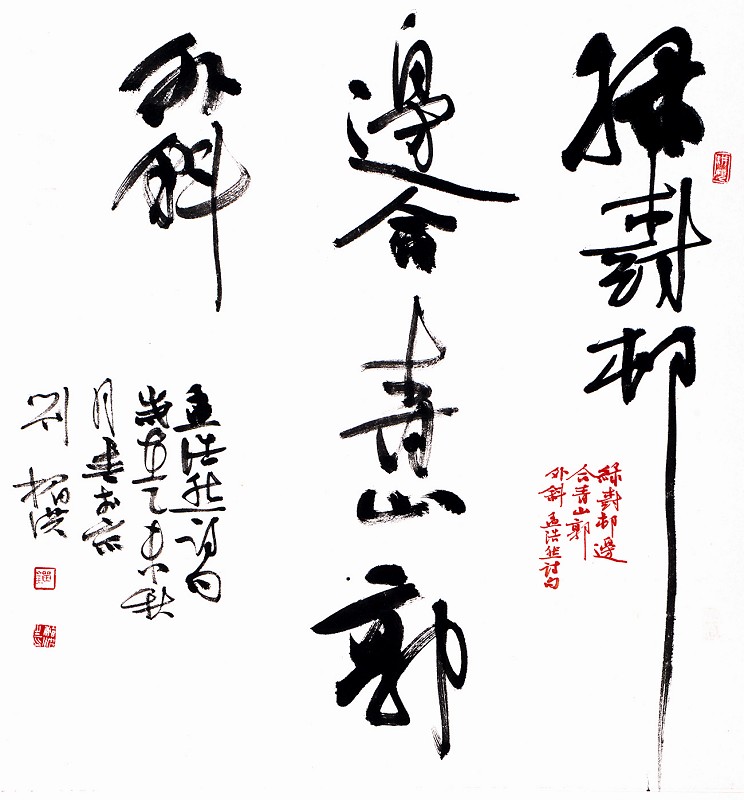 綠樹邨
綠樹邨邊
合青山郭
外斜 孟浩然詩句
邊合青山郭
外斜
孟浩然詩句
歲在乙未秋
月書於京
劉